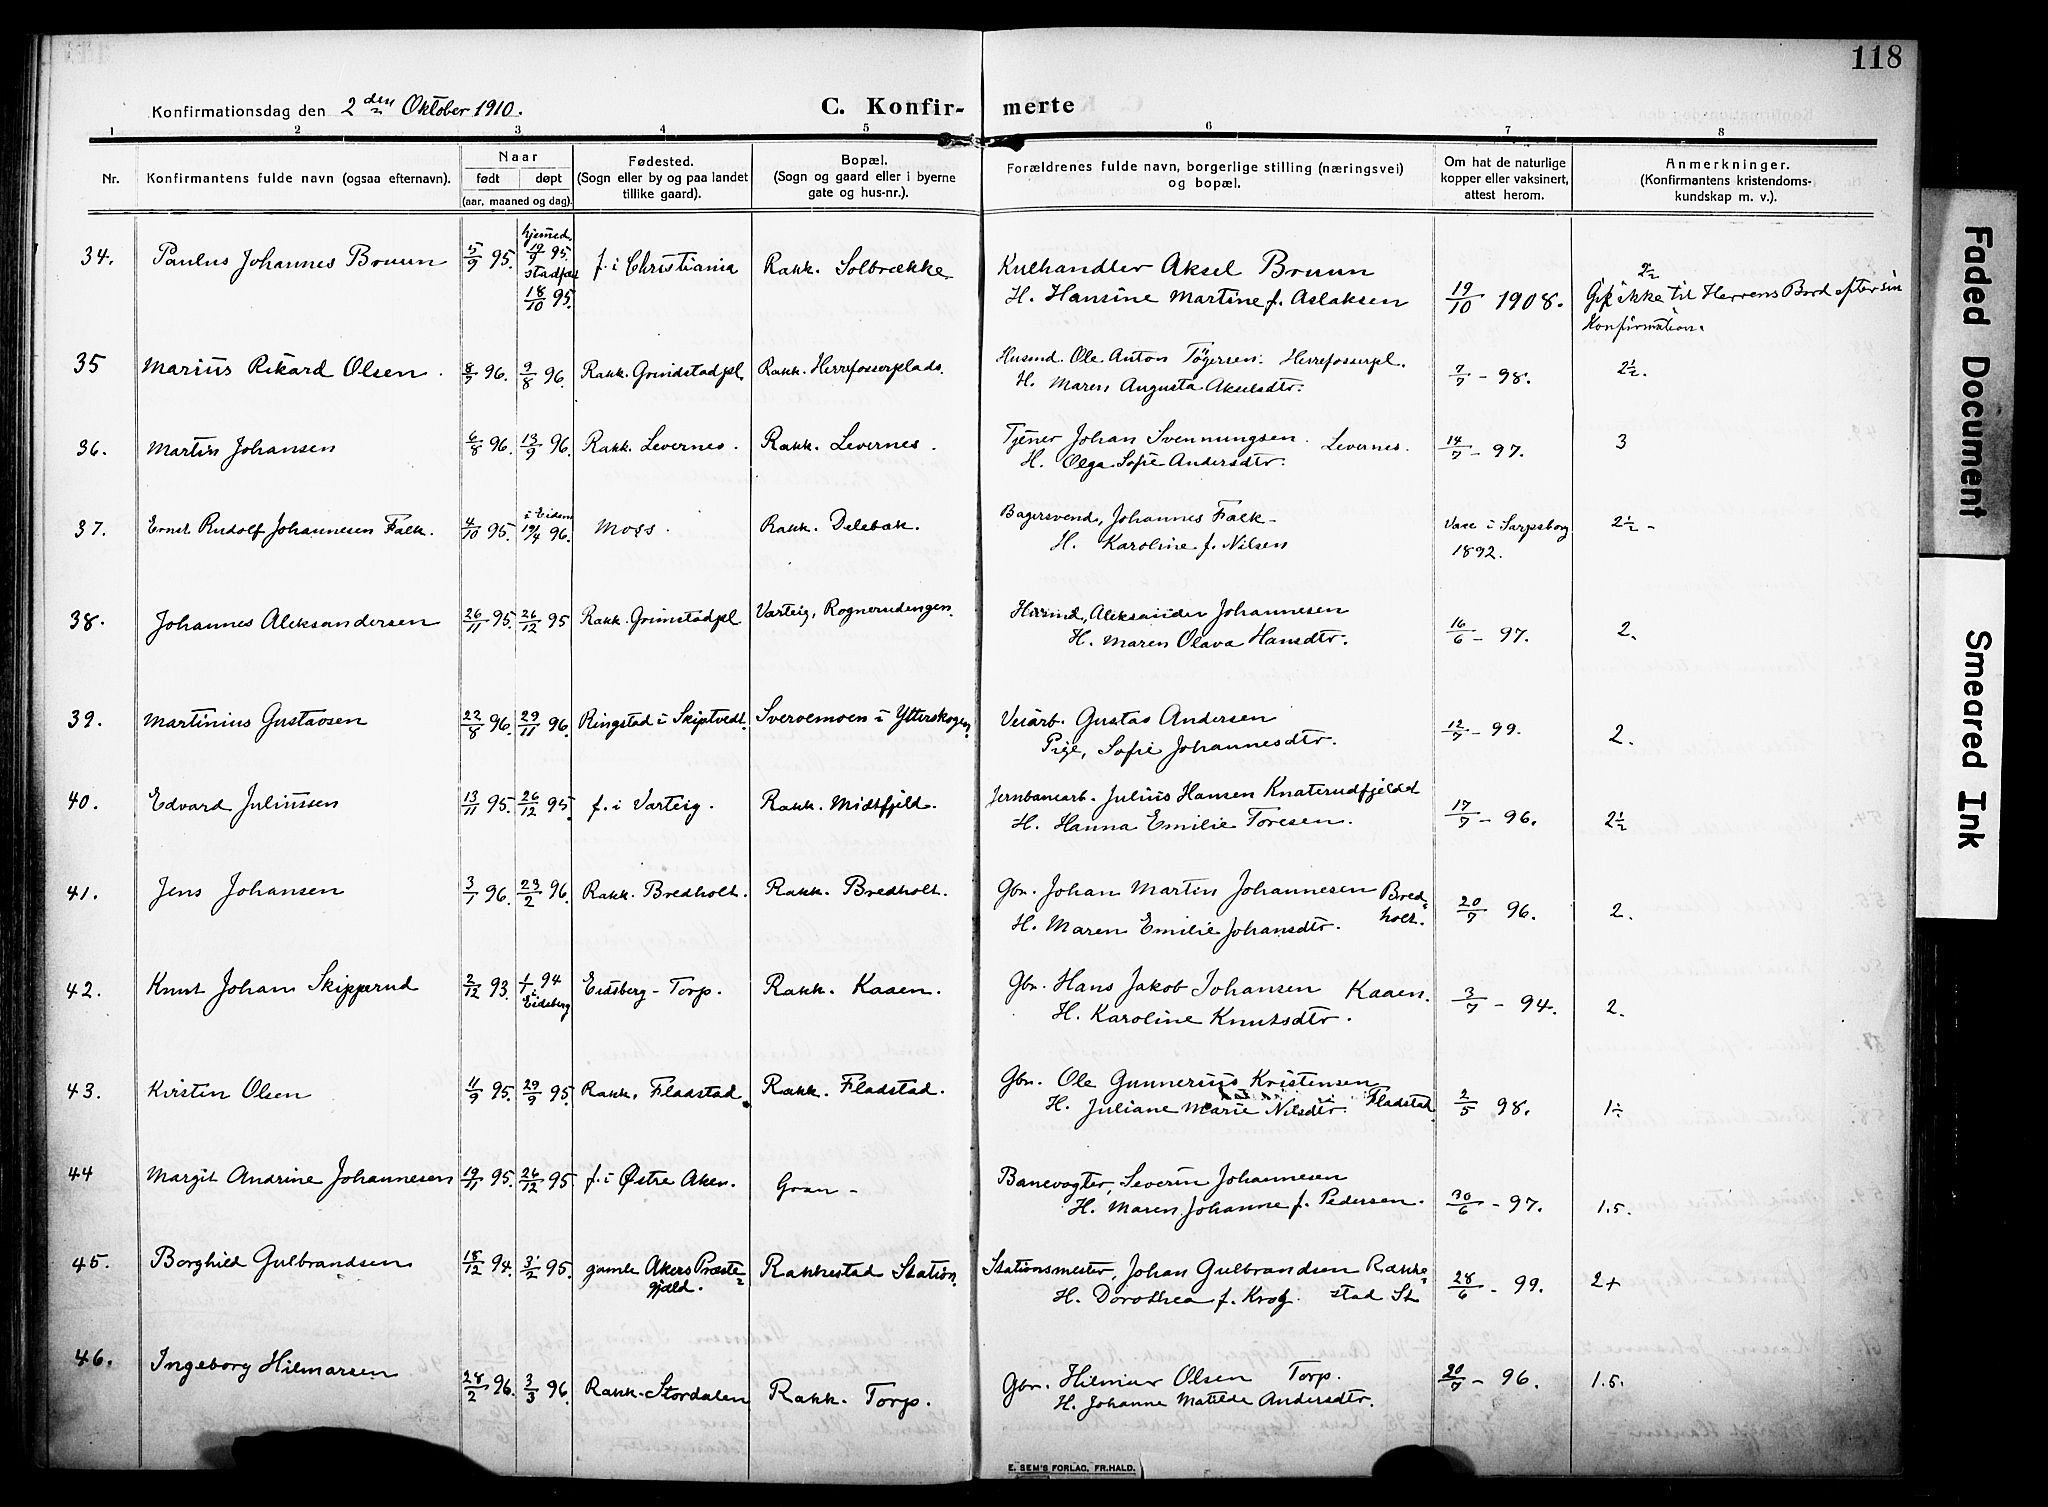 118
Konfirmationsdag den 2den Oktober 1910.
C. Konfir- merte
1 2 3 4 5 6 7 8
Nr.
Konfirmantens fulde navn (ogsaa efternavn).
Naar
født døpt
(aar, maaned og dag).
Fødested.
(Sogn eller by og paa landet
tillike gaard).
Bopæl.
(Sogn og gaard eller i byerne
gate og hus-nr.).
Forældrenes fulde navn, borgerlige stilling (næringsvei)
og bopæl.
Om hat de naturlige
kopper eller vaksinert,
attest herom.
Anmerkninger.
(Konfirmantens kristendoms-
kundskap m. v.).
34. Paulus Johannes Bruun 5/9 95. hjemmed. 19/9 95. stadfæst 18/10 95. f. i Christiania Rakk. Solbrække
Kulhandler Aksel Bruun
H. Hansine Martine f. Aslaksen
19/10 1908.
Gik ikke til Herrens Bord efter sin
Konfirmation.
35 Marius Rikard Olsen. 8/7 96. 9/8 96. Rakk. Grindstadpl. Rakk. Herrefosserplads.
Husmd. Ole Anton Tøgersen. Herrefosserpl.
H. Maren Augusta Akselsdtr.
7/7 - 98. 2½.
36. Martin Johansen 6/8 96. 13/9 96. Rakk. Levernes. Rakk. Levernes.
Tjener Johan Svennungsen. Levernes.
H. Olga Sofie Andersdtr.
14/7 - 97. 3
37. Ernst Rudolf Johannesen Falk. 4/10 95. 19/4 96. Moss. Rakk. Delebæk.
Bagersvend, Johannes Falk -
H. Karoline f. Nilsen
Vacc i Sarpsborg
1892.
2½ -
38. Johannes Aleksandersen 26/11 95. 26/12 95 Rakk. Grimstadpl Varteig, Rognerudengen.
Husmd, Aleksander Johannesen
H. Maren Olava Hansdtr.
16/6 - 97. 2.
39. Martinius Gustavsen 22/8 96. 29/11 96. Ringstad i Skiptvedt. Svervemoen i Ytterskogen.
Veiarb. Gustav Andersen
Pige, Sofie Johannesdtr.
12/7 - 99. 2.
40. Edvard Juliussen 13/11 95. 26/12 95. f. i Varteig. Rakk. Midtfjeld.
Jernbanearb. Julius Hansen Knaterudfjeldet
H. Hanna Emilie Toresen.
17/7 - 96. 2½
41. Jens Johansen 3/1 96. 23/2 96. Rakk. Bredholt. Rakk. Bredholt.
Gbr. Johan Martin Johannesen Bred=
H. Maren Emilie Johansdtr. holt.
20/7 96. 2.
42. Knut Johan Skipperud 2/12 93. 1/1 94 i Eidsberg Eidsberg - Torp. Rakk. Kaaen.
Gbr. Hans Jakob Johansen Kaaen.
H. Karoline Knutsdtr.
3/7 - 94. 2.
43. Kirstin Olsen 11/9 95. 29/9 95. Rakk. Fladstad. Rakk. Fladstad.
Gbr. Ole Gunnerius Kristensen
H. Juliane Marie Nilsdtr. Fladstad
2/5 98. 1÷
44 Margit Andrine Johannesen 19/11 95. 26/12 95 f. i Østre Aker. Gran -
Banevogter, Severin Johannesen
H. Maren Johanne f. Pedersen.
30/6 - 97. 1.5.
45. Borghild Gulbrandsen 18/12 94. 3/2 95. gamle Akers Præste=
gjæld.
Rakkestad Station.
Stationsmester, Johan Gulbrandsen Rakke=
H. Dorothea f. Krog. stad St
28/6 - 99. 2+
46. Ingeborg Hilmarsen 28/2 96. 3/3 96. Rakk. Stordalen Rakk. Torp.
Gbr. Hilmar Olsen Torp.
H. Johanne Matilde Andersdtr.
20/7 - 96. 1.5.
E. SEM'S FORLAG, FR.HALD.
Faded Document
Smeared Ink